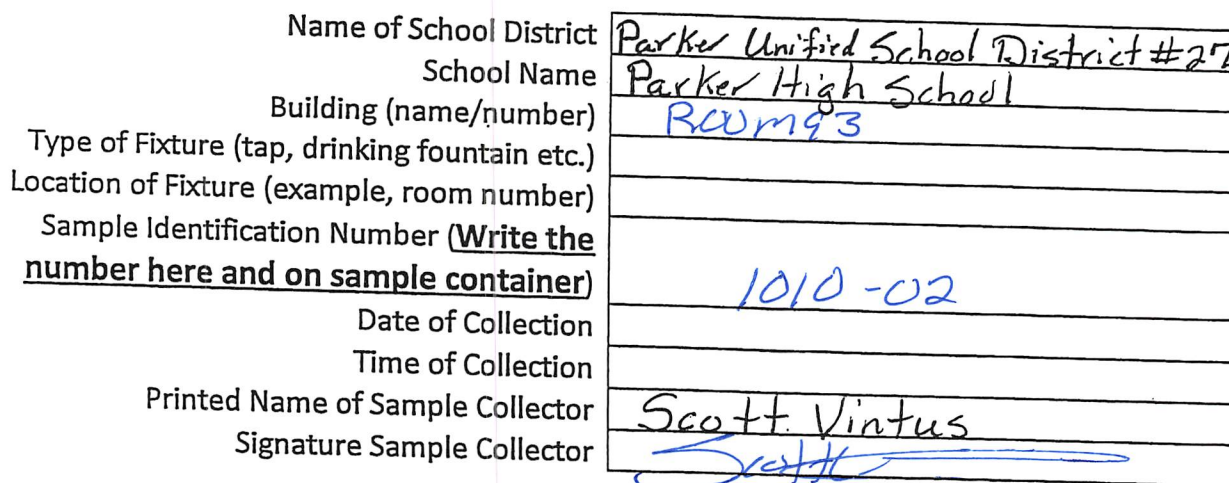 Name of School District Parker Unified School District #27
School Name Parker High School
Building (name/number) Room 93
Type of Fixture (tap, drinking fountain etc.)
Location of Fixture (example, room number)
Sample Identification Number (Write the
number here and on sample container) 1010-02
Date of Collection
Time of Collection
Printed Name of Sample Collector Scott Vintus
Signature Sample Collector Scott